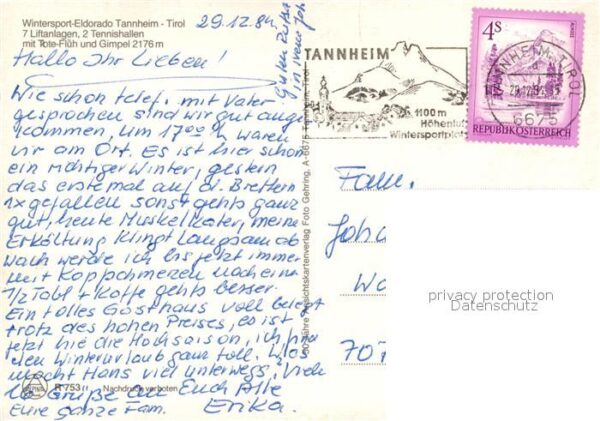 Wintersport-Eldorado Tannheim - Tirol
7 Liftanlagen, 2 Tennishallen
mit Rote-Flüh und Gimpel 2176 m
29.12.84
Guten Rutsch
Hallo Ihr Lieben!
Wie schon telef. mit Vater
gesprochen sind wir gut ange
kommen, um 17.00 h waren
wir am Ort. Es ist hier schon
ein richtiger Winter, gestern
das erstemal auf d. Brettern
1x gefallen sonst gehts ganz
gut, heute Muskelkater, meine
Erkältung klingt langsam ab
wach werde ich bis jetzt immer
mit Kopfschmerzen nach eine
1/2 Tabl + Koffe gehts besser.
Ein tolles Gasthaus voll belegt
trotz des hohen Preises, es ist
jetzt hie die Hochsaison, ich
den Winterurlaub ganz toll. Was
macht Hans viel unterwegs? Viele
Grüße an Euch Alle
Eure ganze Fam. Erika.
R 753
Nachdruck verboten
Ansichtskartenverlag Foto Gehring, A-6675 Tannheim, Tirol
TANNHEIM
1100 m
Höhenluft
Wintersportplatz
4S
REPUBLIK ÖSTERREICH
TANNHEIM, TIROL
6675
Fam.
Joh
Wa
707
privacy protection
Datenschutz